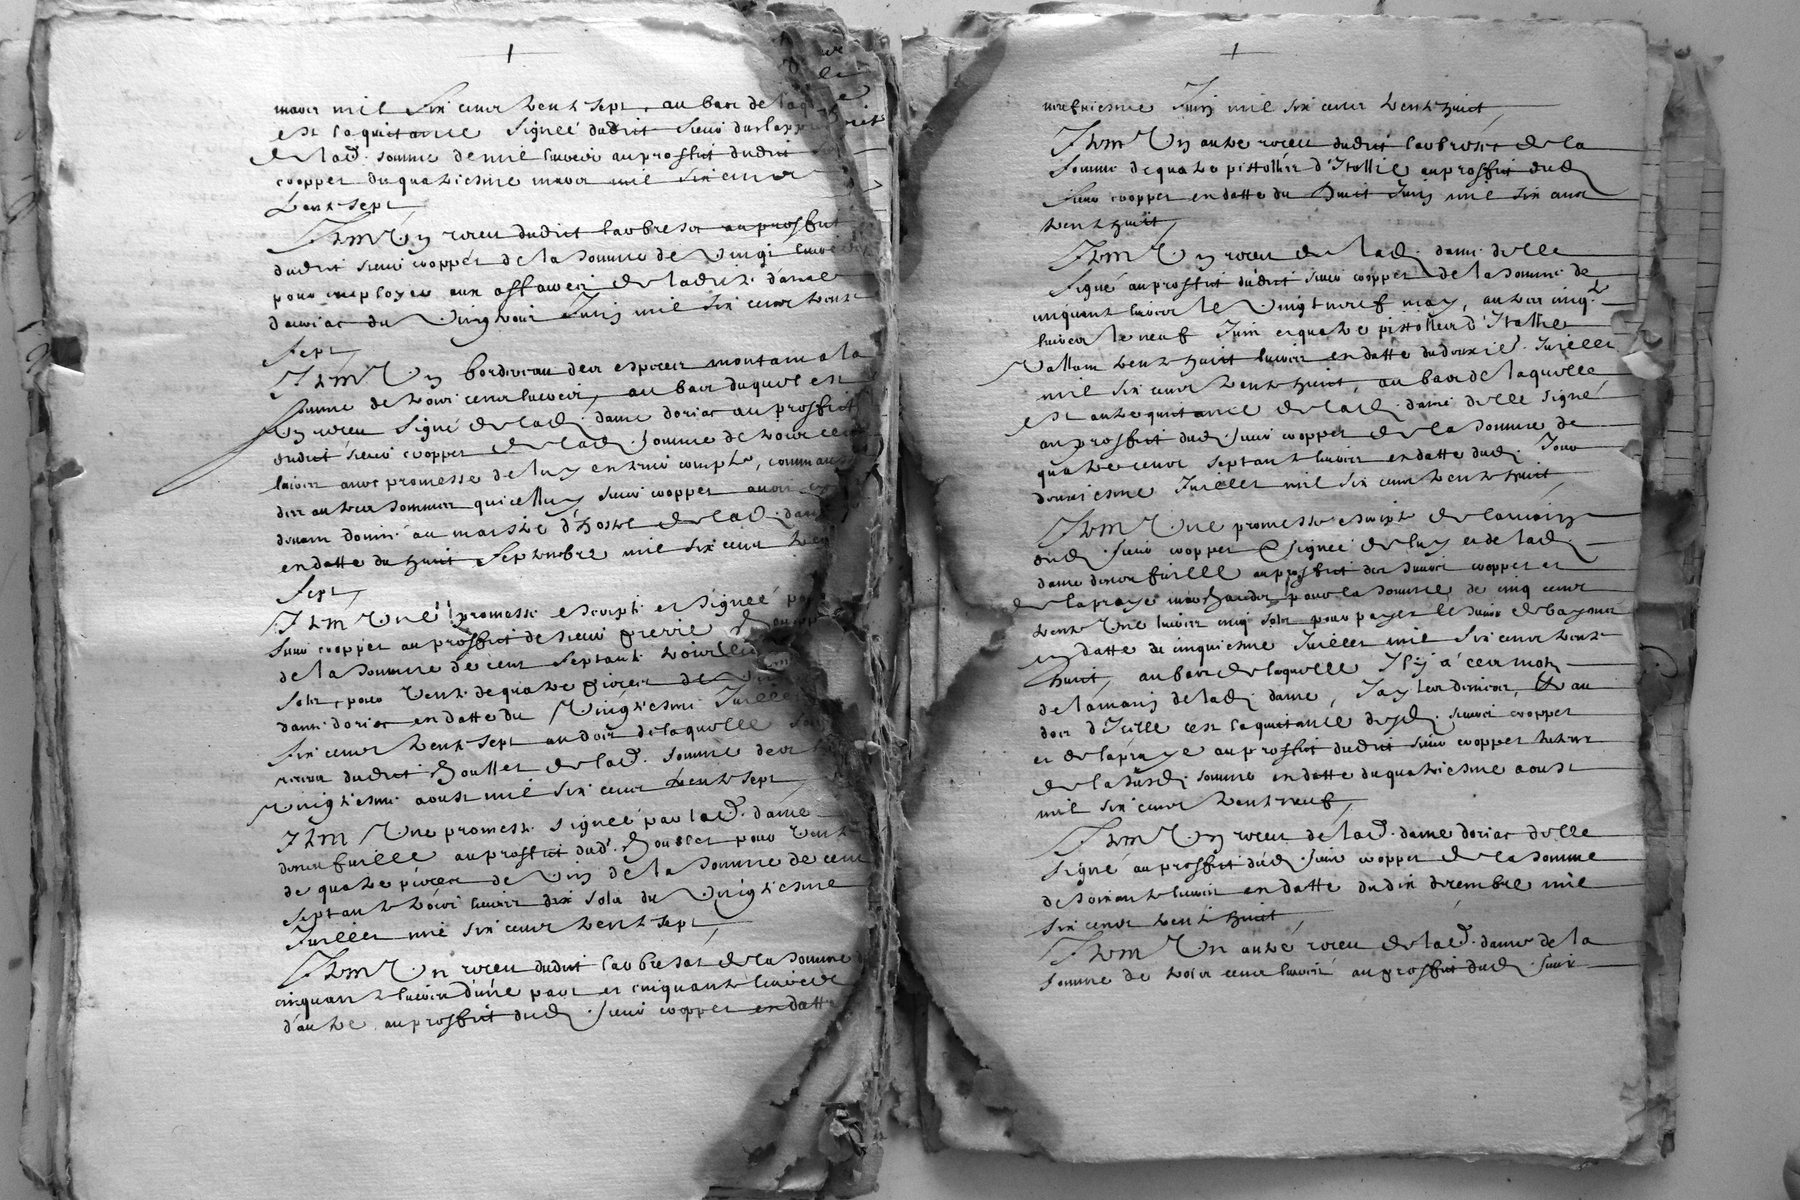 mars mil six cens trente sept, au bas de laq
est la quitance signée dudit sieur
de lad. somme de mil livres au proffict dudit
copper du quatriesme mars mil six cens
trente sept
Item Un receu dudict laubresat au proffict
dudict sieur copper de la somme de vingt livres
pour employer aux affaires de ladite dame
dauriac du vingt trois Juin mil six cens trente
sept
Item Un bordereau des especes montant a la
somme de trois cens livres, au bas duquel est
un receu signé de lad. dame doriac au proffict
dudict sieur copper de lad. somme de trois cens
livres avec promesse de luy en tenir compte, comme aussi
des autres sommes qu'icelluy sieur copper avoit
devant donné au maistre d'hostel de lad. dame
en datte du huict septembre mil six cens trente
sept
Item Une promesse escripte et signée par
sieur copper au proffict de sieur pierre
de la somme de cent septante trois livres
sols, pour vente de quatre pieces de vin
dame doriac en datte du vingtiesme Juillet
six cens trente sept au dos de laquelle
receu dudict Boullet de lad. somme
vingtiesme aoust mil six cens trente sept
Item Une promesse signée par lad. dame
au proffict dud. pour vente
de quatre pieces de vin de la somme de cent
septante trois livres dix sols du vingtiesme
Juillet mil six cens trente sept
Item Un receu dudict laubresat de la somme
cinquante livres d'une part et cinquante livres
d'autre au proffict dud. sieur copper en datte
Juin mil six cens trente huict
Item Un autre receu dudict laubresat de la
somme de quatre pistolles d'Itallie au proffict dud.
sieur copper en datte du huict Juin mil six cens
trente huict
Item Un receu de lad. dame delle
signé au proffict dudict sieur copper de la somme de
cinquante livres le vingt neuf may, autres cinq.te
livres le neuf Juin et quatre pistolles d'Itallie
vallant trente huict livres en datte du Juillet
mil six cens trente huict, au bas de laquelle
est autre quitance de lad. dame delle signé
au proffict dud. sieur copper de la somme de
quatre cens septante livres en datte dud. Jour
douziesme Juillet mil six cens trente huict
Item Une promesse escripte de la main
dud. sieur copper & signée de luy et de lad.
dame au proffict des sieurs copper et
de lapraye marchandz pour la somme de cinq cens
trente une livres cinq sols pour payer le sieur de
en datte du cinquiesme Juillet mil six cens trente
huict, au bas de laquelle Il y a ces motz
de la main de lad. dame, au
dos d'Icelle est la quitance desd. sieurs copper
et de lapraye au proffict dudict sieur copper
de la susd. somme en datte du quatriesme aoust
mil six cens trente neuf
Item Un receu de lad. dame doriac delle
signé au proffict dud. sieur copper de la somme
de soixante livres en datte du dix decembre mil
six cens trente huict
Item Un autre receu de lad. dame de la
somme de trois cens livres au proffict dud. sieur